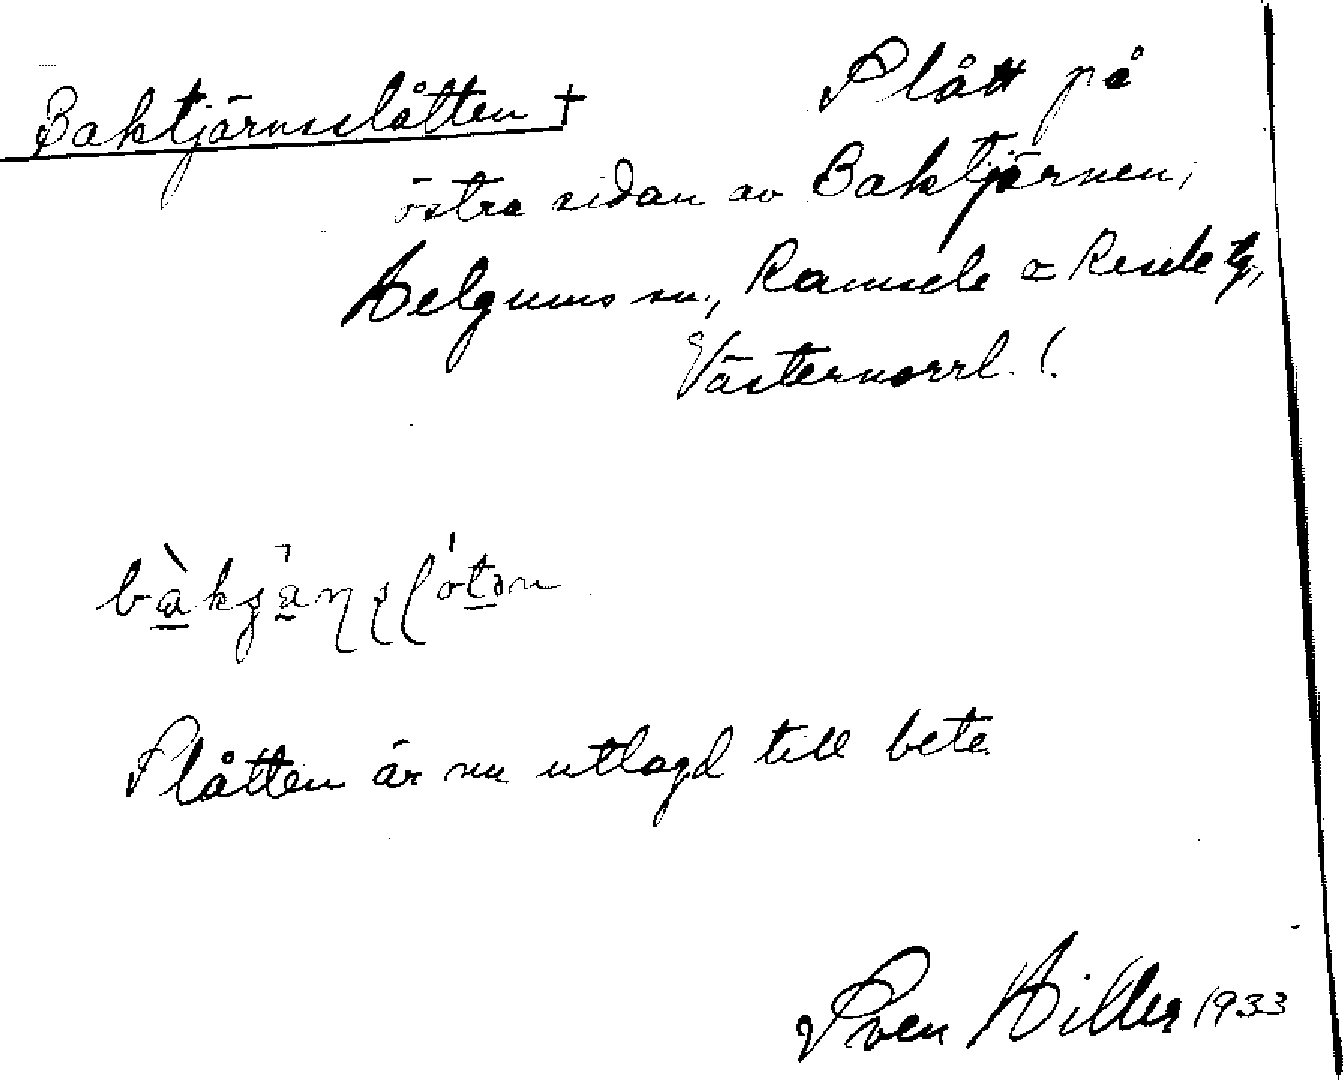 Baktjärnsslåtten † Slått på
östra sidan av Baktjärnen,
Helgums sn., Ramsele o Resele tg,
Västernorrl. l.
Slåtten är nu utlagd till bete
Sven Hiller 1933